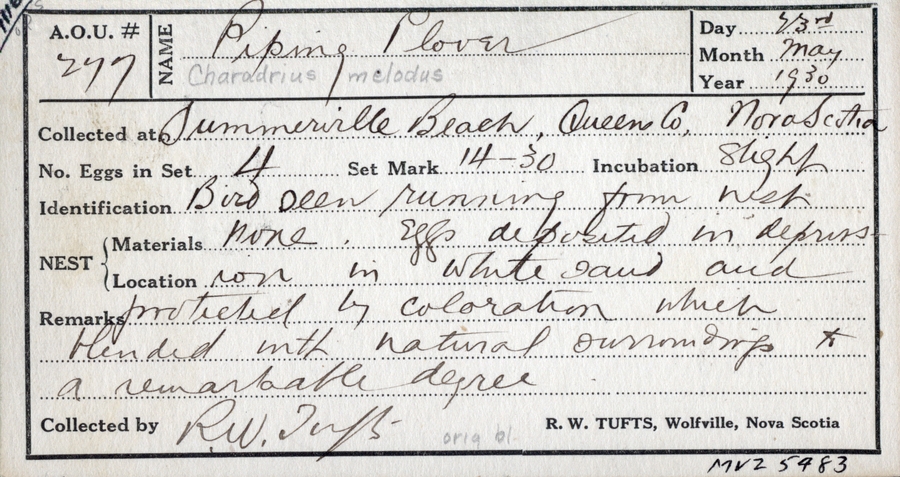 A.O.U. #
277
NAME Piping Plover
Charadrius melodus
Day 23rd
Month May
Year 1930
Collected at Summerville Beach, Queens Co. Nova Scotia
No. Eggs in Set 4 Set Mark 14-30 Incubation Slight
Identification Bird seen running from nest
NEST
Materials None. Eggs deposited in depress-
Location ion in white sand and
Remarks protected by coloration which
blended with natural surroundings to
a remarkable degree
Collected by R.W. Tufts
orig bl.
R. W. TUFTS, Wolfville, Nova Scotia
MVZ 5483